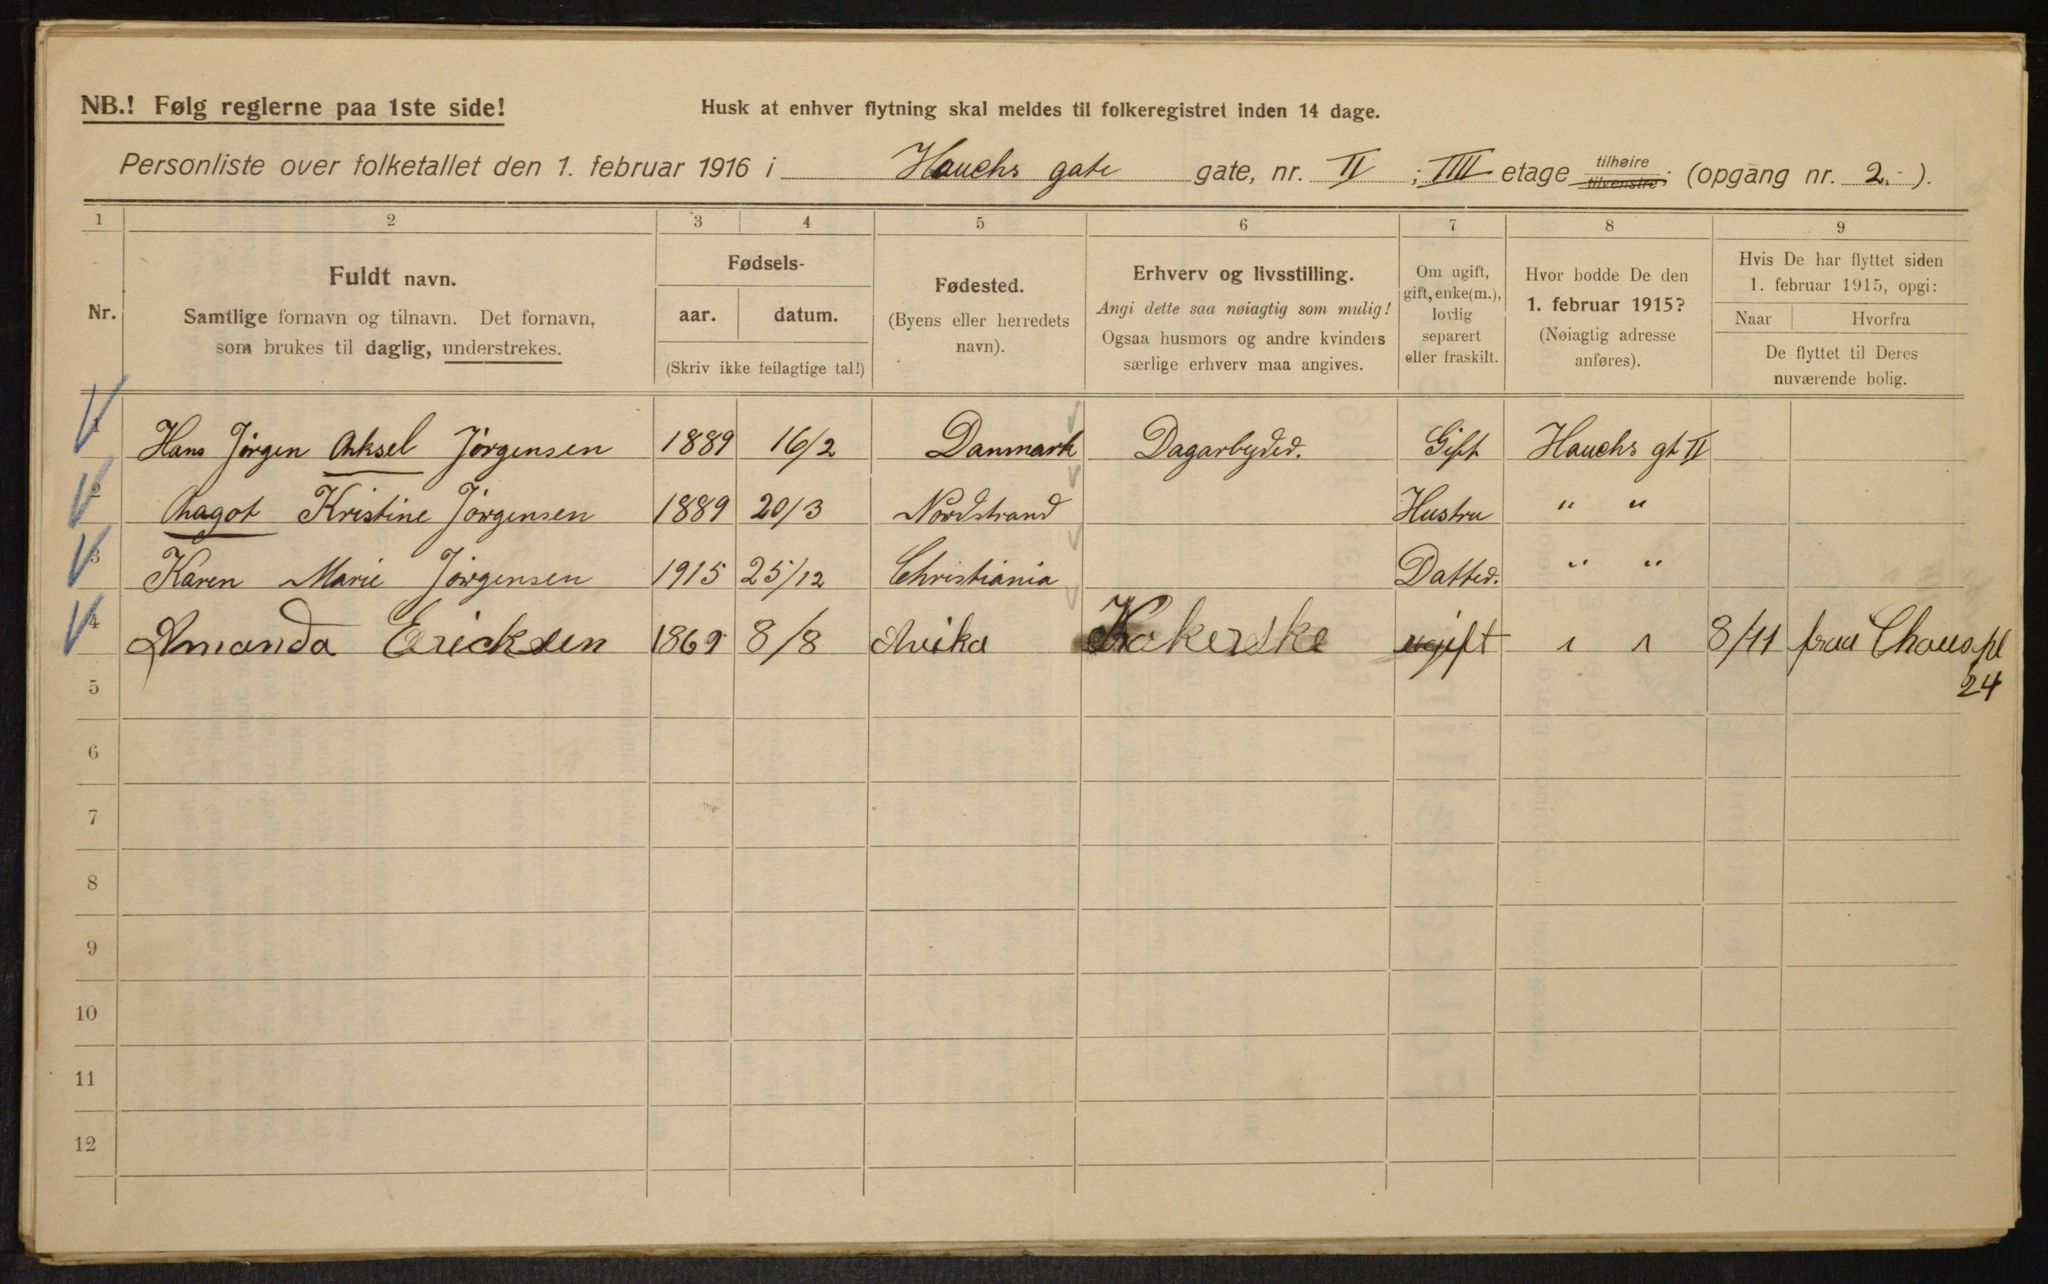 NB.! Følg reglerne paa 1ste side!
Husk at enhver flytning skal meldes til folkeregistret inden 14 dage.
Personliste over folketallet den 1. februar 1916 i Hauchs gate gate, nr. II ; IIII etage tilhøire tilvenstre; (opgang nr. 2.- ).
1 2 3 4 5 6 7 8 9
Nr.
Fuldt navn.
Samtlige fornavn og tilnavn. Det fornavn,
som brukes til daglig, understrekes.
Fødsels-
aar. datum.
(Skriv ikke feilagtige tal!)
Fødested.
(Byens eller herredets
navn).
Erhverv og livsstilling.
Angi dette saa nøiagtig som mulig!
Ogsaa husmors og andre kvinders
særlige erhverv maa angives.
Om ugift,
gift, enke(m.),
lovlig
separert
eller fraskilt.
Hvor bodde De den
1. februar 1915?
(Nøiagtig adresse
anføres).
Hvis De har flyttet siden
1. februar 1915, opgi:
Naar Hvorfra
De flyttet til Deres
nuværende bolig.
1 Hans Jørgen Aksel Jørgensen 1889 16/2 Danmark Dagarbyded. Gift Hauchs gt II
2 Kristine Jørgensen 1889 20/3 Nordstrand Hustru " "
3 Karen Marie Jørgensen 1915 25/12 Christiania Datted. " "
4 Amanda Ericksen 1869 8/8 Arvika Kokerske ugift " " 8/11 fraa
24
5
6
7
8
9
10
11
12